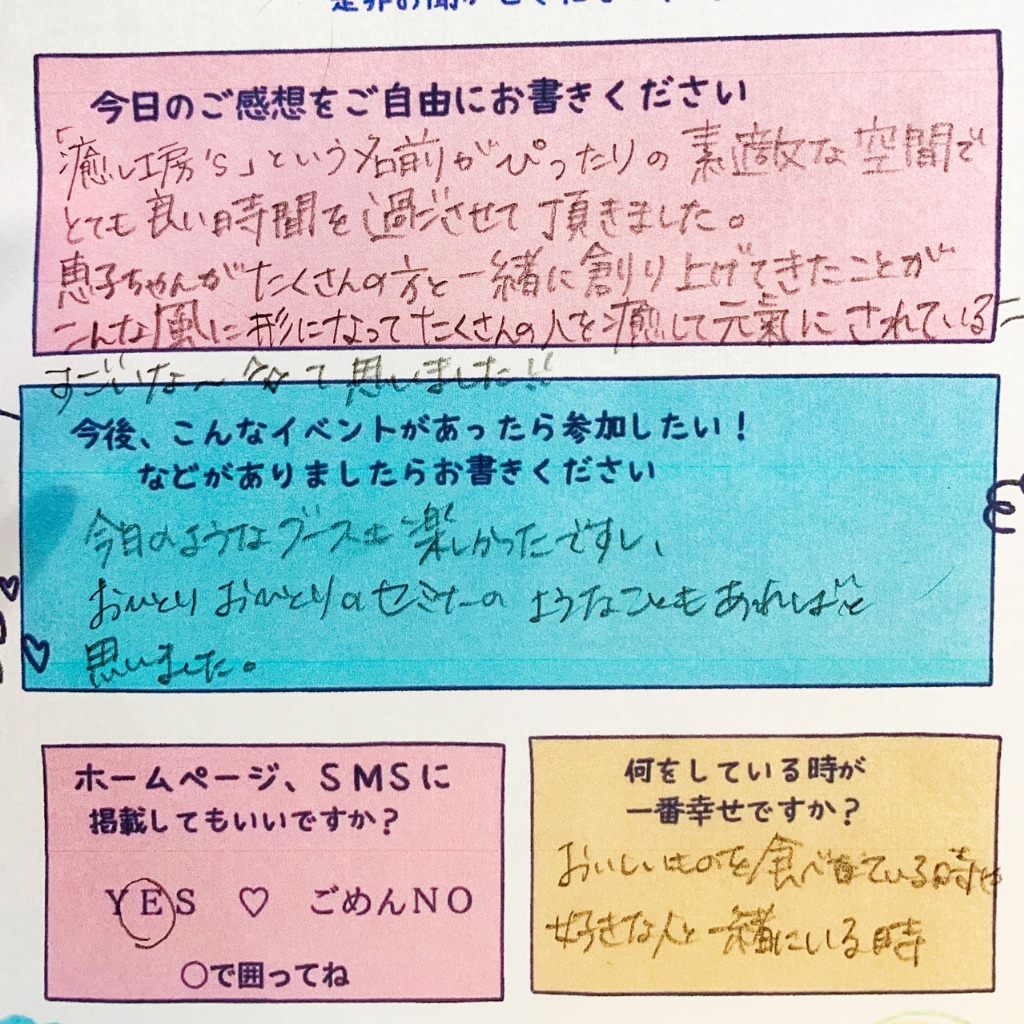 今日のご感想をご自由にお書きください
「癒し工房'S」という名前がぴったりの素敵な空間で
とても良い時間を過ごさせて頂きました。
恵子ちゃんがたくさんの方と一緒に創り上げてきたことが
こんな風に形になってたくさんの人を癒して元氣にされている
すごいな〜☆☆て思いました!!
今後、こんなイベントがあったら参加したい！
などがありましたらお書きください
今日のようなブースも楽しかったですし、
おひとりおひとりのセミナーのようなこともあればと
思いました。
ホームページ、SMSに
掲載してもいいですか？
YES ♡ ごめんNO
○で囲ってね
何をしている時が
一番幸せですか？
おいしいものを食べている時や
好きな人と一緒にいる時